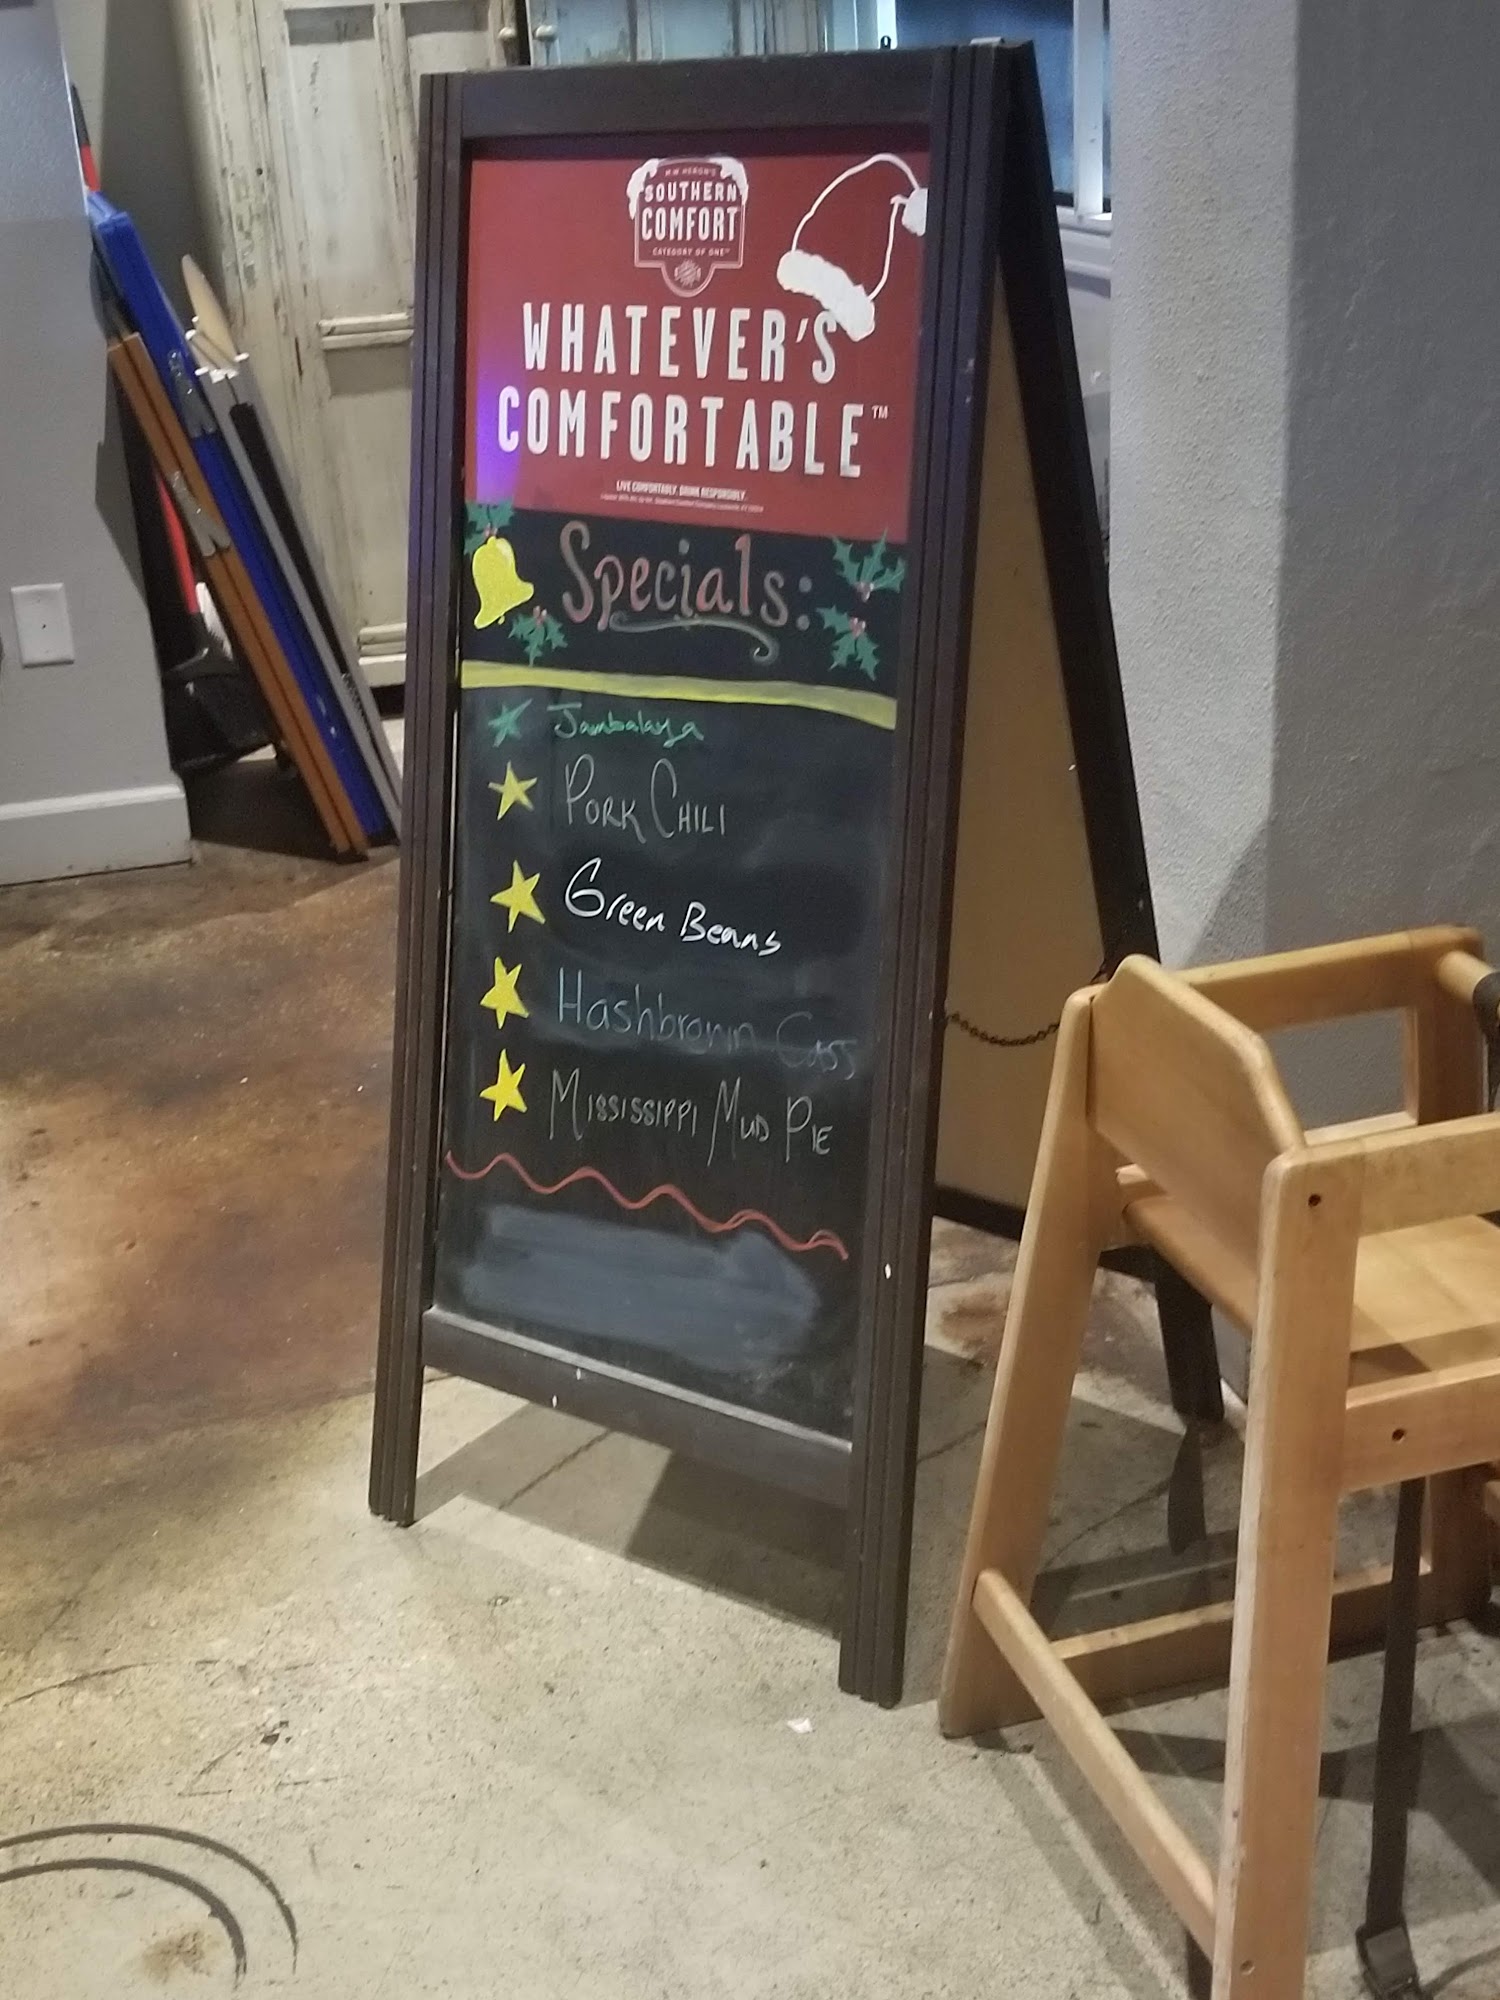 M.W. HERON'S
SOUTHERN
COMFORT
CATEGORY OF ONE™
WHATEVER'S
COMFORTABLE™
LIVE COMFORTABLY. DRINK RESPONSIBLY.
Specials:
Jambalaya
PORK CHILI
Green Beans
Hashbrown Cass
MISSISSIPPI MUD PIE